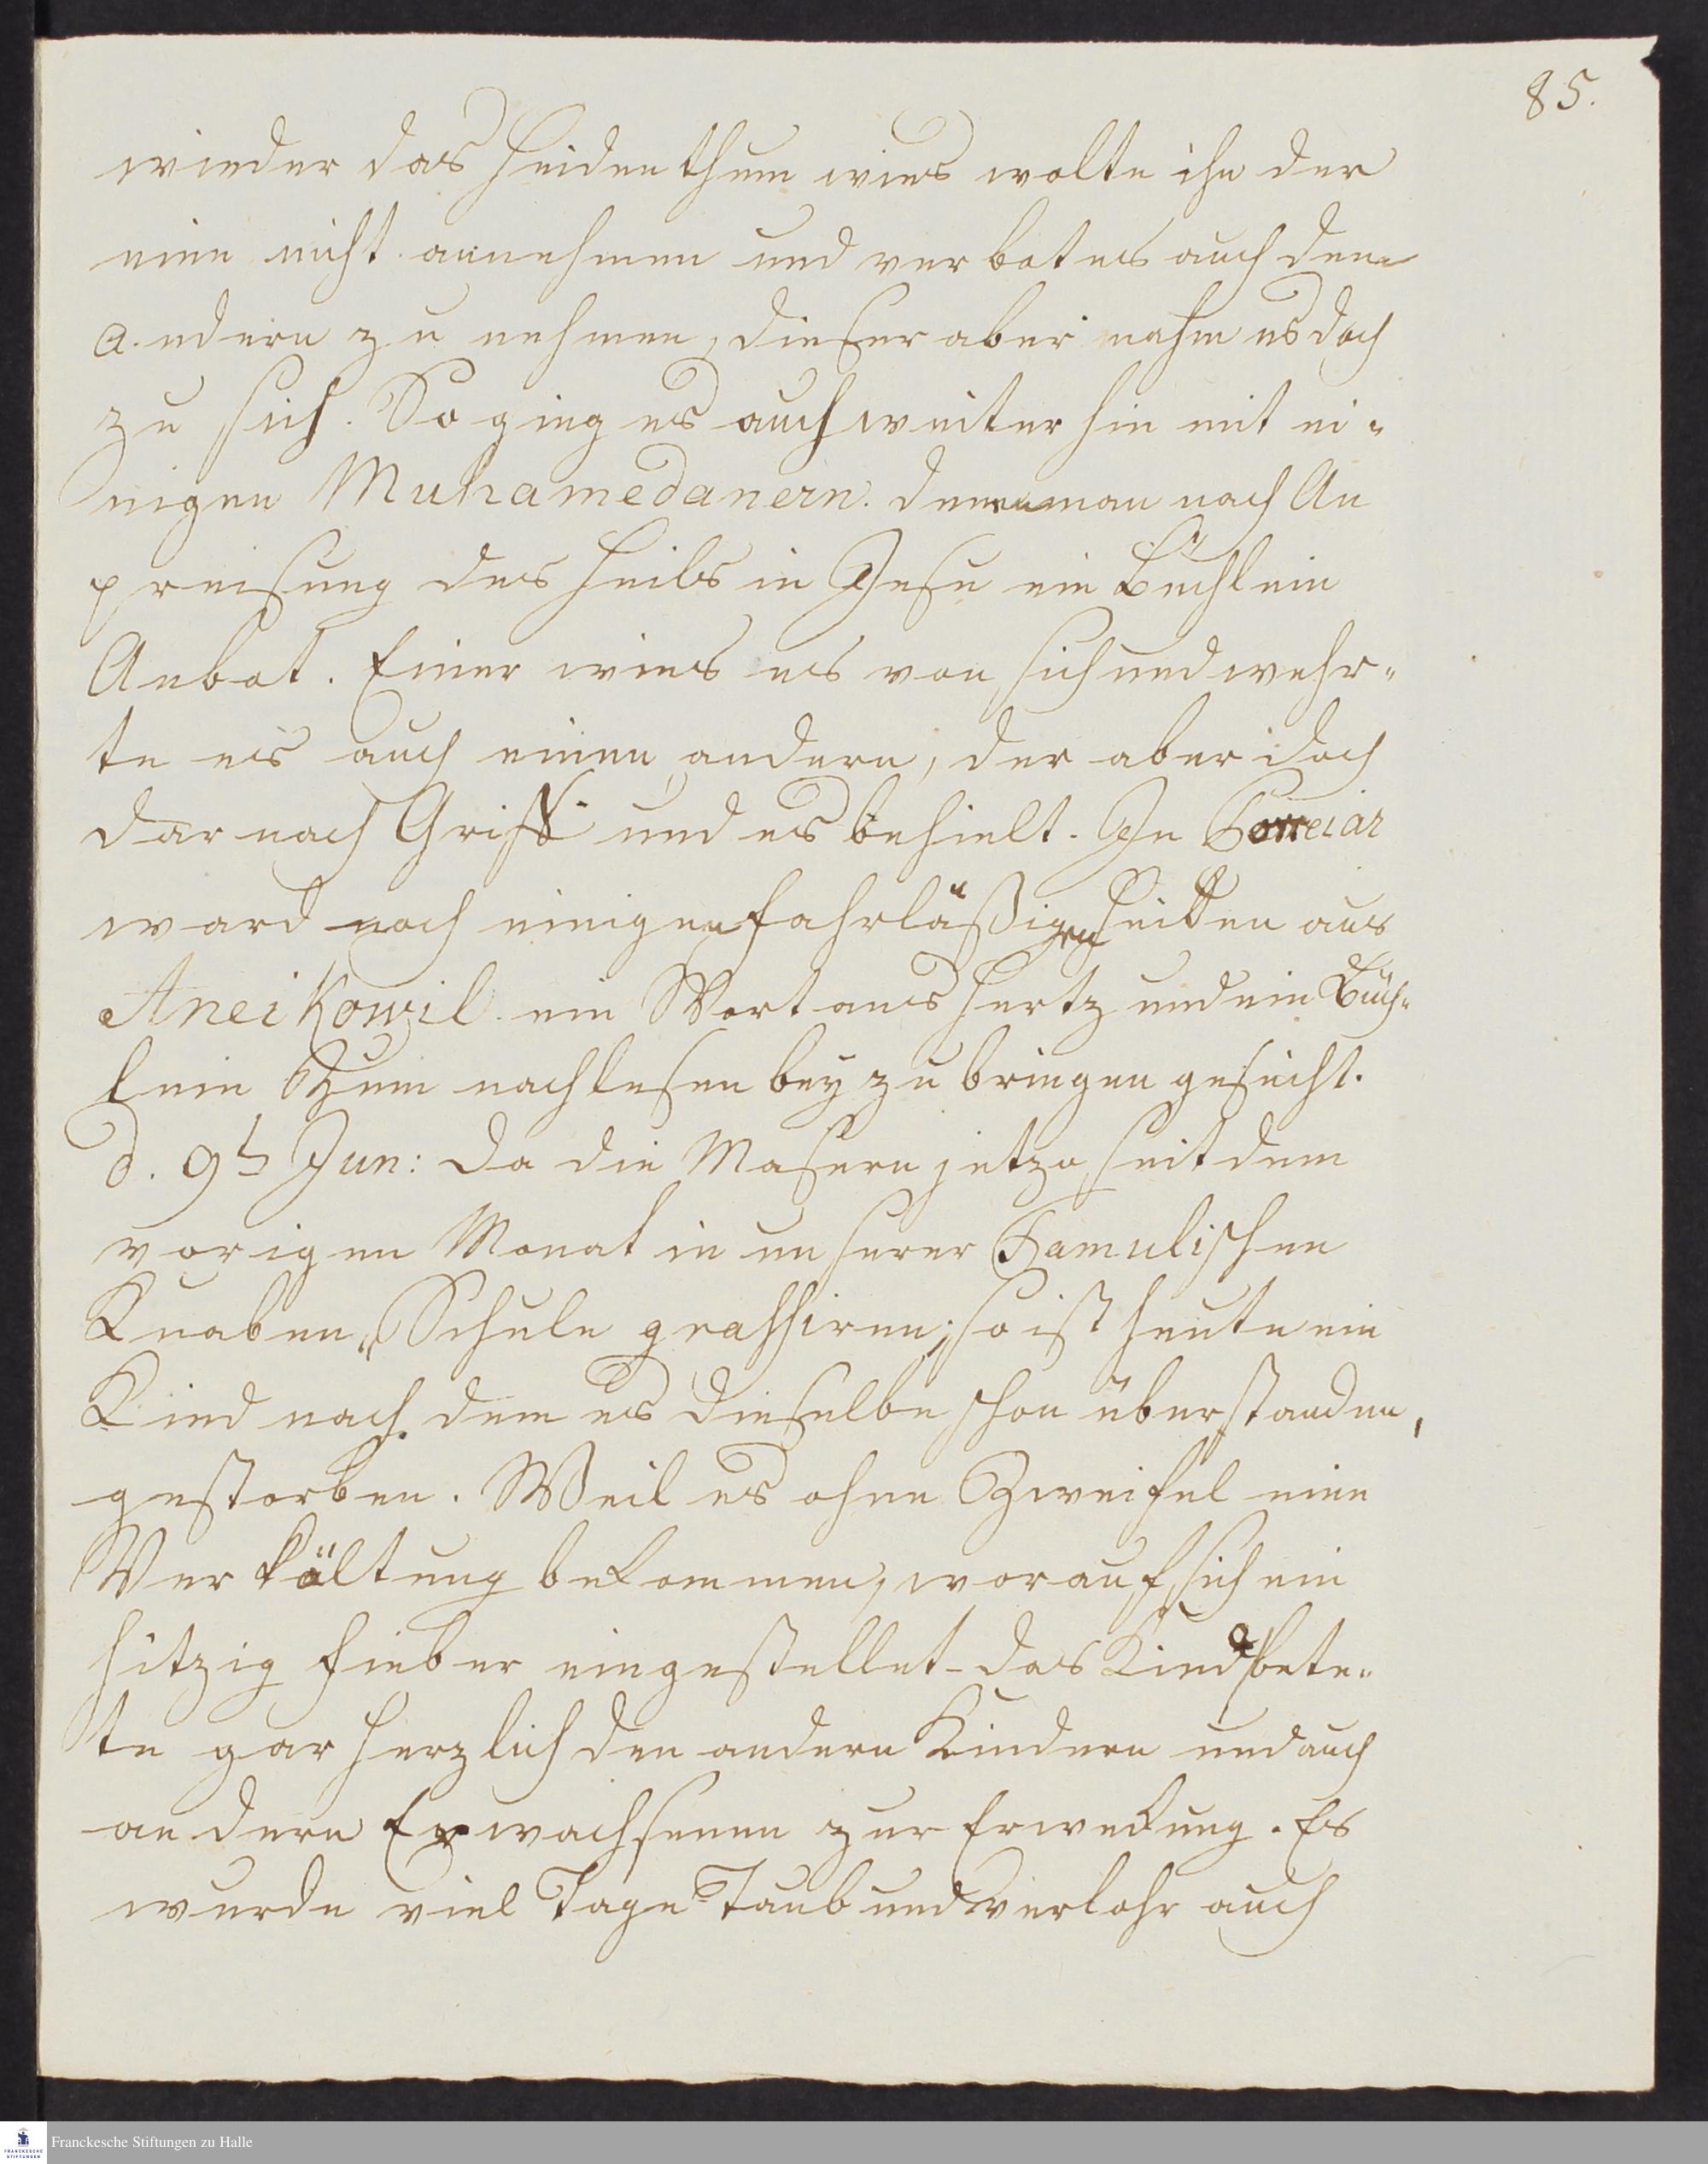 85.
wieder das Heidenthum wies wolte ihn der
eine nicht annehmen und verbot es auch dem
andern zu nehmen, dieser aber nahm es doch
zu sich. So ging es auch weiter hin mit ei-
nigen Muhamedanern. denen man nach An
preisung des Heils in Jesu ein Büchlein
Anbot. Einer wies es von sich und wehr-
te es auch einen andern, der aber doch
darnach Griff und es behielt. In
ward noch einigen fahrläßigen Heiden aus
Aneikowil ein Wort ans Hertz und ein Büch-
lein Zum nachlesen bey zu bringen gesucht.
d. 9t Jun: Da die Masern jetzo seit dem
vorigen Monat in unserer Tamulischen
Knaben-Schule grassiren; so ist heute ein
Kind nach dem es dieselbe schon überstanden,
gestorben. Weil es ohne Zweifel eine
Verkältung bekommen, worauf sich ein
hitzig Fieber eingestellet das Kind bete-
te gar herzlich den andern Kindern und auch
andern Erwachsenen zur Erweckung. Es
wurde viel Tage Taub und verlohr auch
Franckesche Stiftungen zu Halle
FRANCKESCHE
STIFTUNGEN